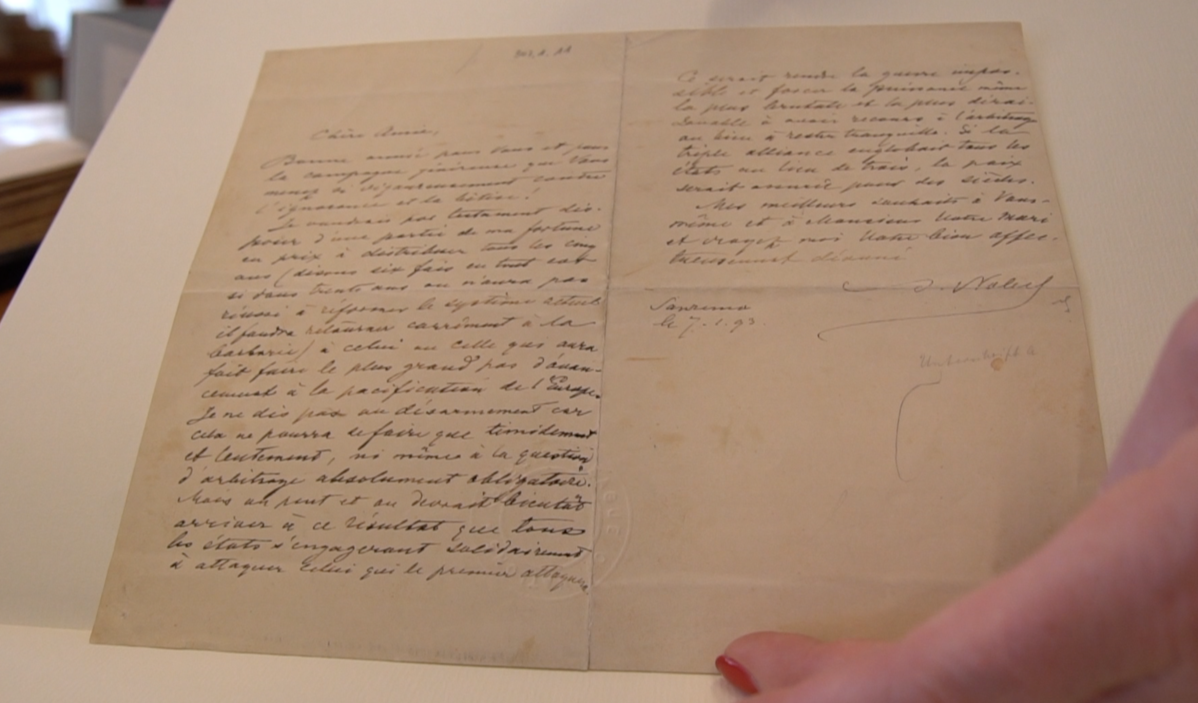 Chère Amie,
Bonne année pour Vous et pour
la campagne généreuse que Vous
menez si vigoureusement contre
l'ignorance et la bêtise!
Je voudrais par testament dis-
poser d'une partie de ma fortune
en prix à distribuer tous les cinq
ans (disons six fois en tout car
si dans trente ans on n'aura pas
réussi à réformer le système actuel
il faudra retourner carrément à la
barbarie) à celui ou celle qui aura
fait faire le plus grand pas d'avan-
cement à la pacification de l'Europe.
Je ne dis pas au désarmement car
cela ne pourra se faire que timidement
et lentement, ni même à la question
d'arbitrage absolument obligatoire.
Mais on peut et on devrait bientôt
arriver à ce résultat que tous
les états s'engagerant solidairement
à attaquer celui qui le premier attaquera
Ce serait rendre la guerre impos-
sible et forcer la puissance même
la plus brutale et la plus dérai-
sonnable à avoir recours à l'arbitrage
ou bien à rester tranquille. Si la
triple alliance englobait tous les
états au lieu de trois, la paix
serait assurée pour des siècles.
Mes meilleurs souhaits à Vous-
même et à Monsieur Votre mari
et croyez moi Votre bien affec-
tueusement dévoué
A. Nobel
Sanremo
le 7.1.93